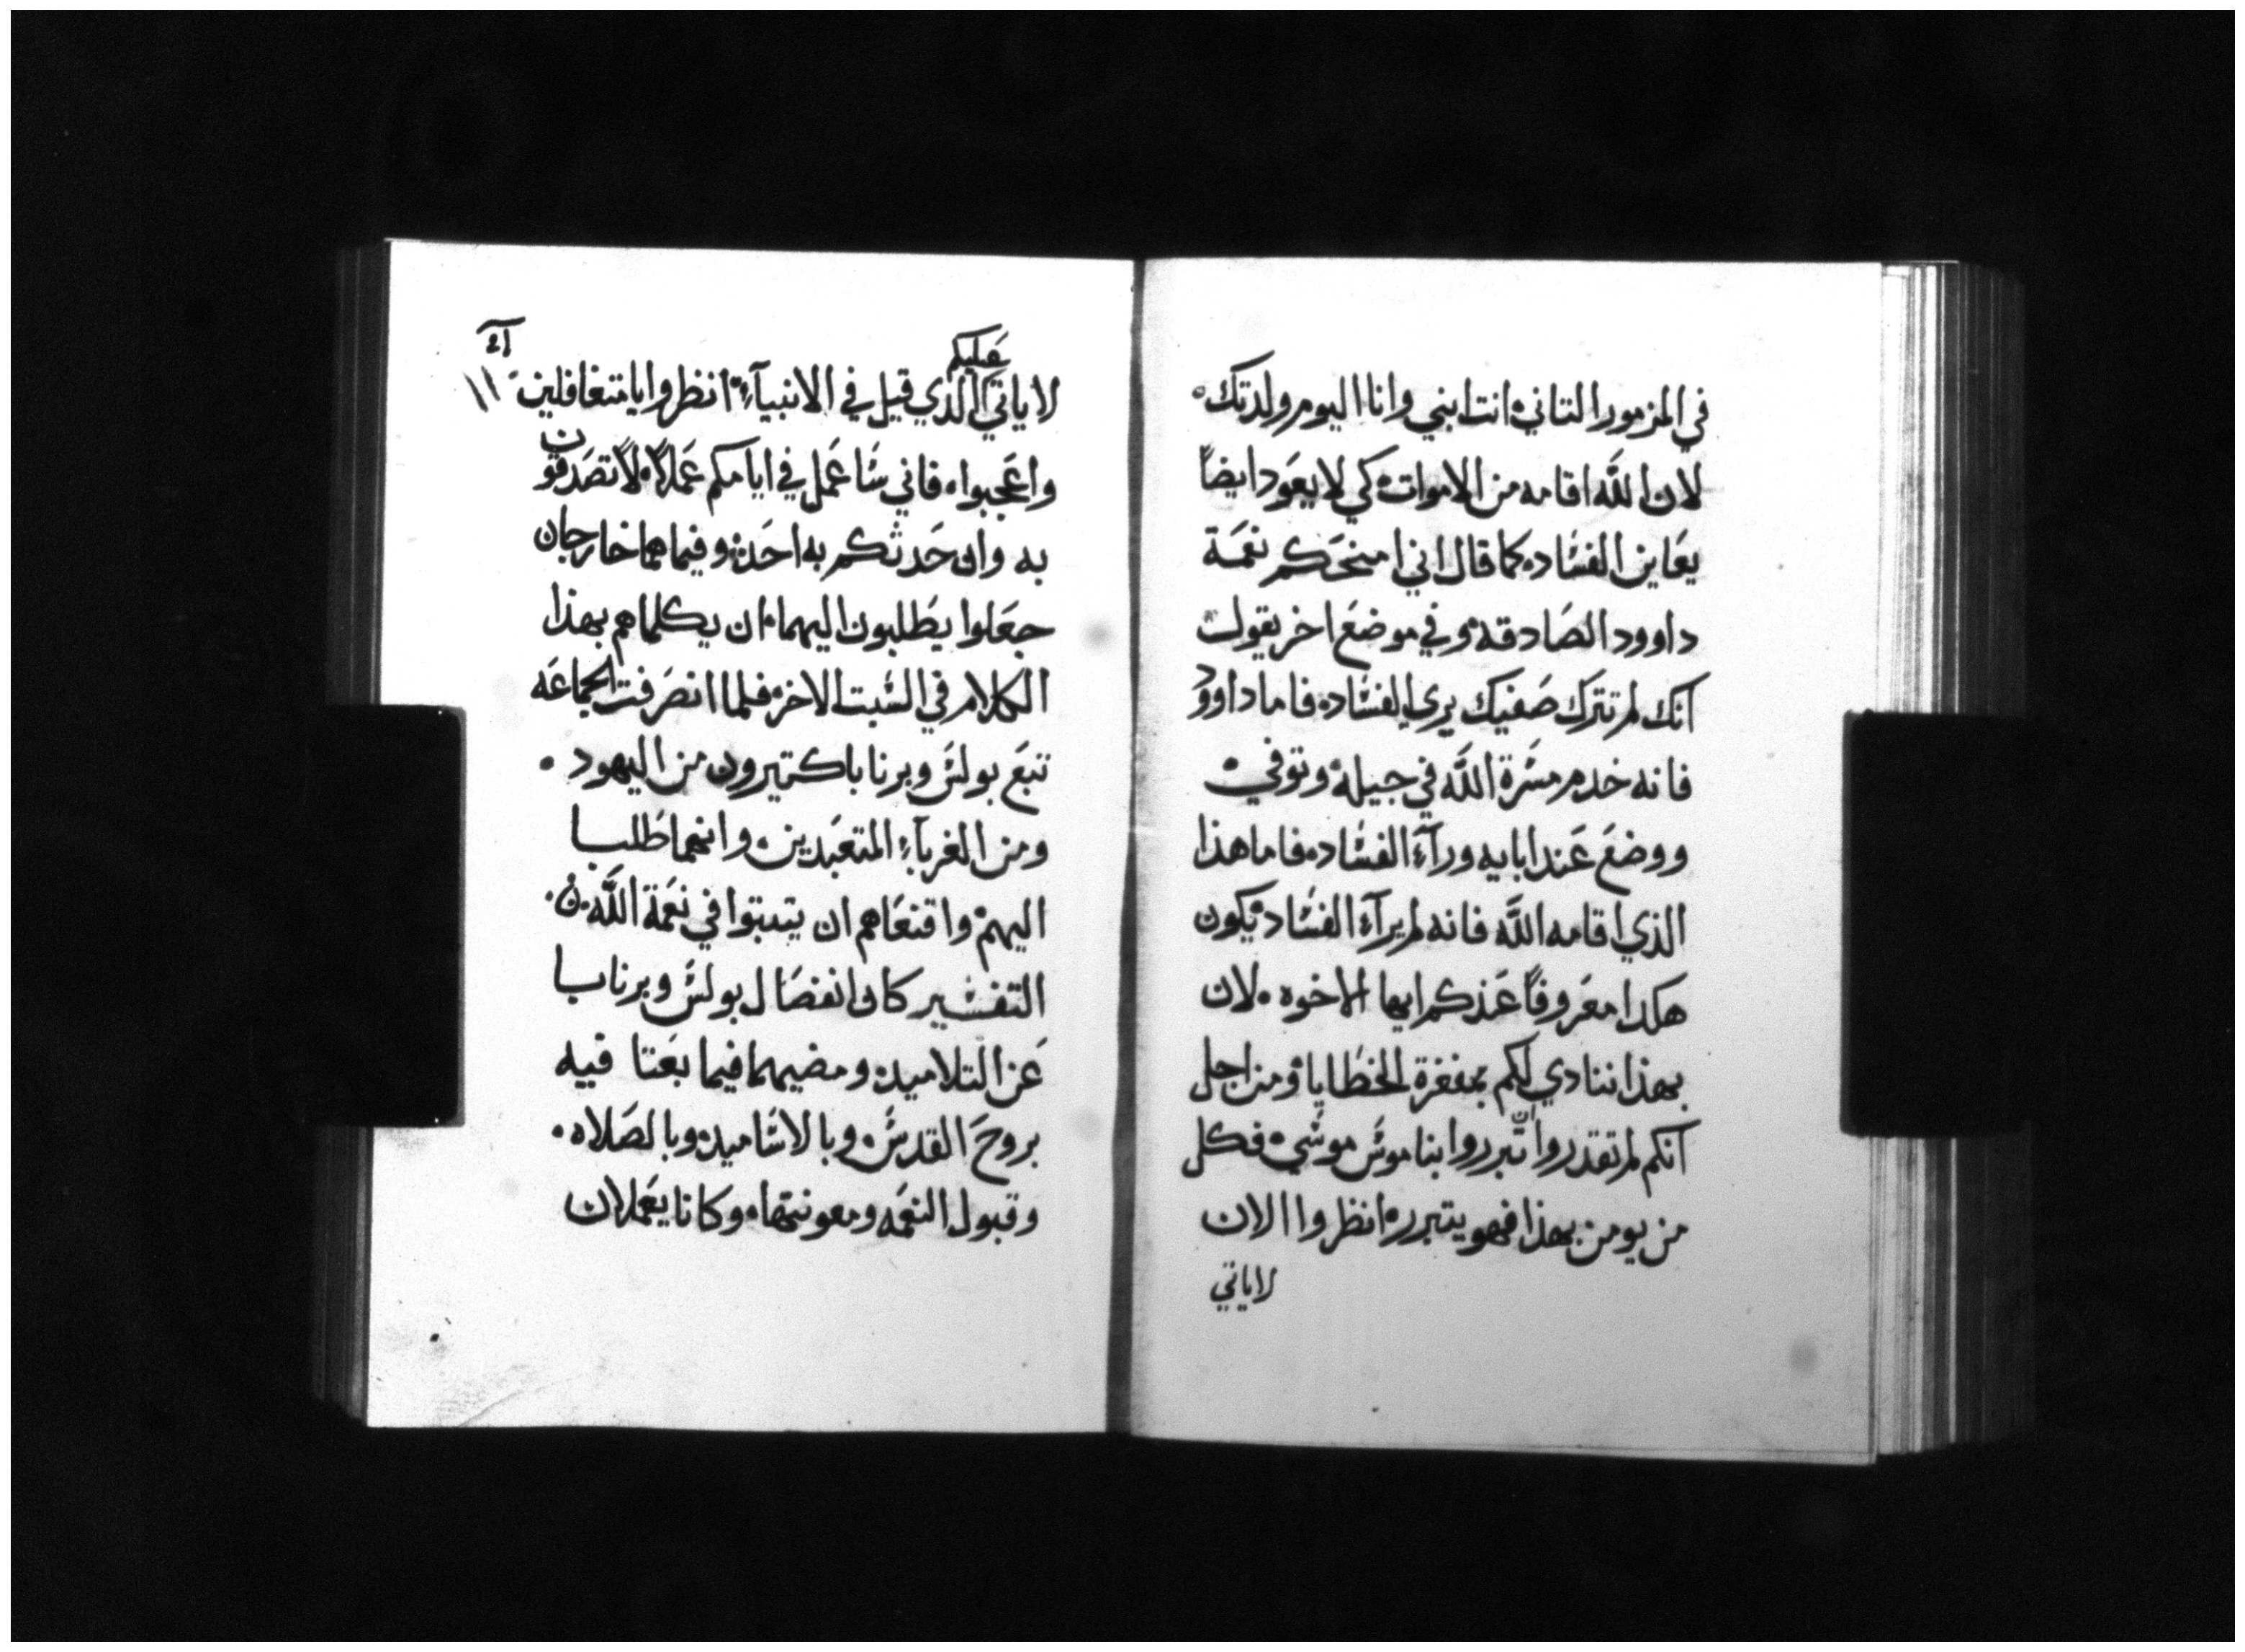 في المزمور التاني انت ابني وانا اليوم ولدتك
لان الله اقامه من الاموات كي لا يعود ايضاً
يعاين الفساد كما قال اني امنحكم نعمة
داوود الصادقه وفي موضع اخر يقول
انك لم تترك صفيك يري الفساد فاما داوود
فانه خدم مسرة الله في جيله وتوفي
ووضع عند ابايه ورآء الفساد فاما هذا
الذي اقامه الله فانه لم يرآء الفساد يكون
هكدا معروفاً عندكم ايها الاخوه لان
بهذا ننادي لكم بمغفرة الخطايا ومن اجل
انكم لم تقدروا ان تبرروا بناموس موسي فكل
من يومن بهذا فهو يتبرر انظروا الان
لا ياتي
لا ياتي عليكم الذي قيل في الانبيآء انظروا يا متغافلين
واعجبوا فاني ساعمل في ايامكم عملاً لا تصدقون
به وان حدثكم به احد وفيما هما خارجان
جعلوا يطلبون اليهما ان يكلماهم بهذا
الكلام في السبت الاخر فلما انصرفت الجماعه
تبع بولس وبرنابا كتيرون من اليهود
ومن الغربآء المتعبدين وانهما طلبا
اليهم واقنعاهم ان يتبتوا في نعمة الله
التفسير كان انفصال بولس وبرنابا
عن التلاميد ومضيهما فيما بعتا فيه
بروح القدس وبالاساميد وبالصلاه
وقبول النعمه ومعونتها وكانا يعملان